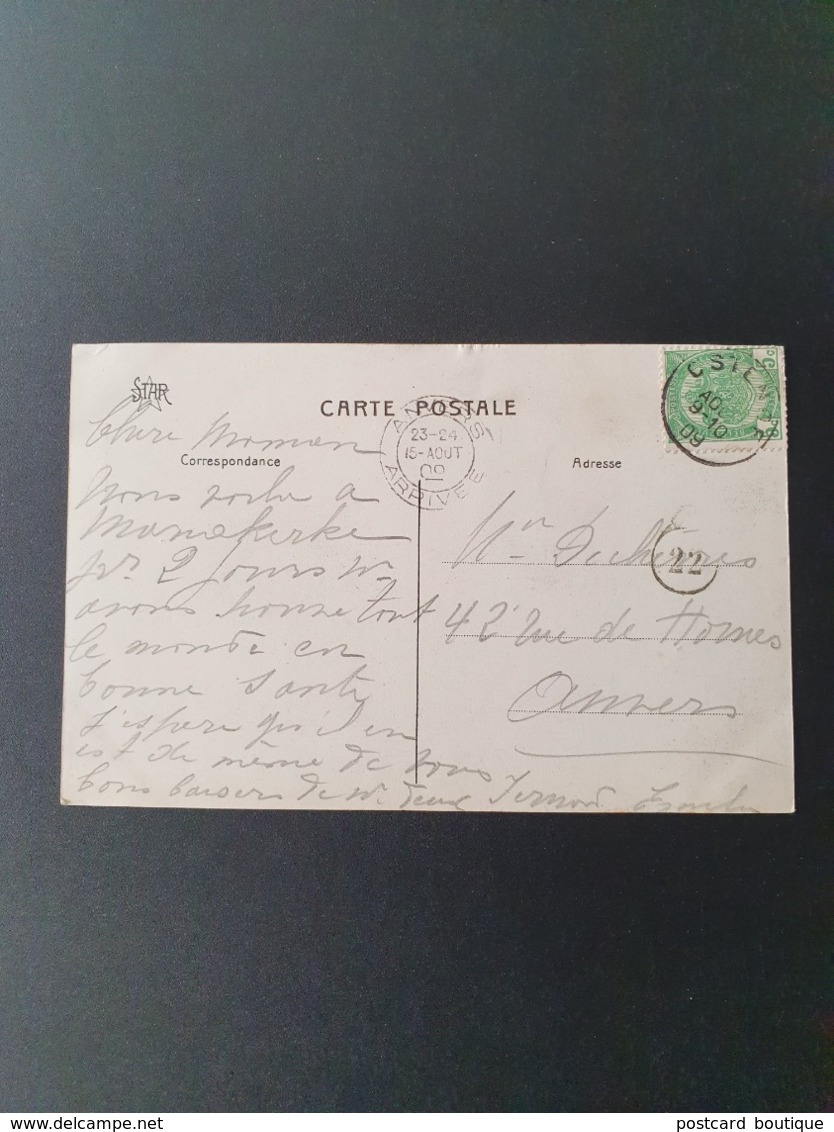 STAR
CARTE POSTALE
Correspondance
Adresse
ANVERS
23-24
15-AOUT
09
ARRIVÉE
OSTEN
AO.
9-10
09
22
Chère Maman
Nous voilà a
Mariakerke
pr 2 jours
avons trouvé tout
le monde en
bonne santé
J'espère qu'il en
est de même de vous
bons baisers de deux Fernand
42 rue de Hornes
Anvers
delcampe.net
postcard boutique